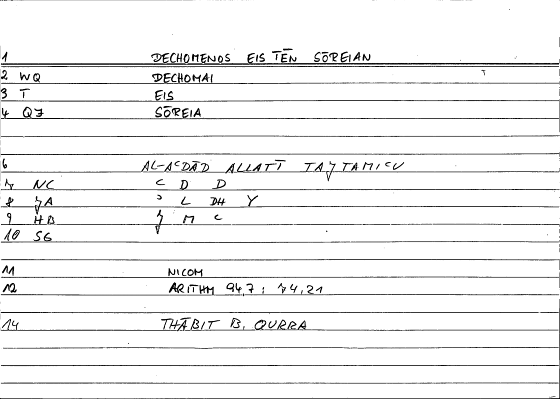 1 DECHOMENOS EIS TĒN SŌREIAN
2 WQ DECHOMAI
3 T EIS
4 QJ SŌREIA
6 AL-AʿDĀD ALLATĪ TAǦTAMIʿU
7 NC ʿ D D
8 ǦA ʾ L DH Y
9 HB Ǧ M ʿ
10 SG
11 NICOM
12 ARITHM 94,7 ; 74,21
14 THĀBIT B. QURRA